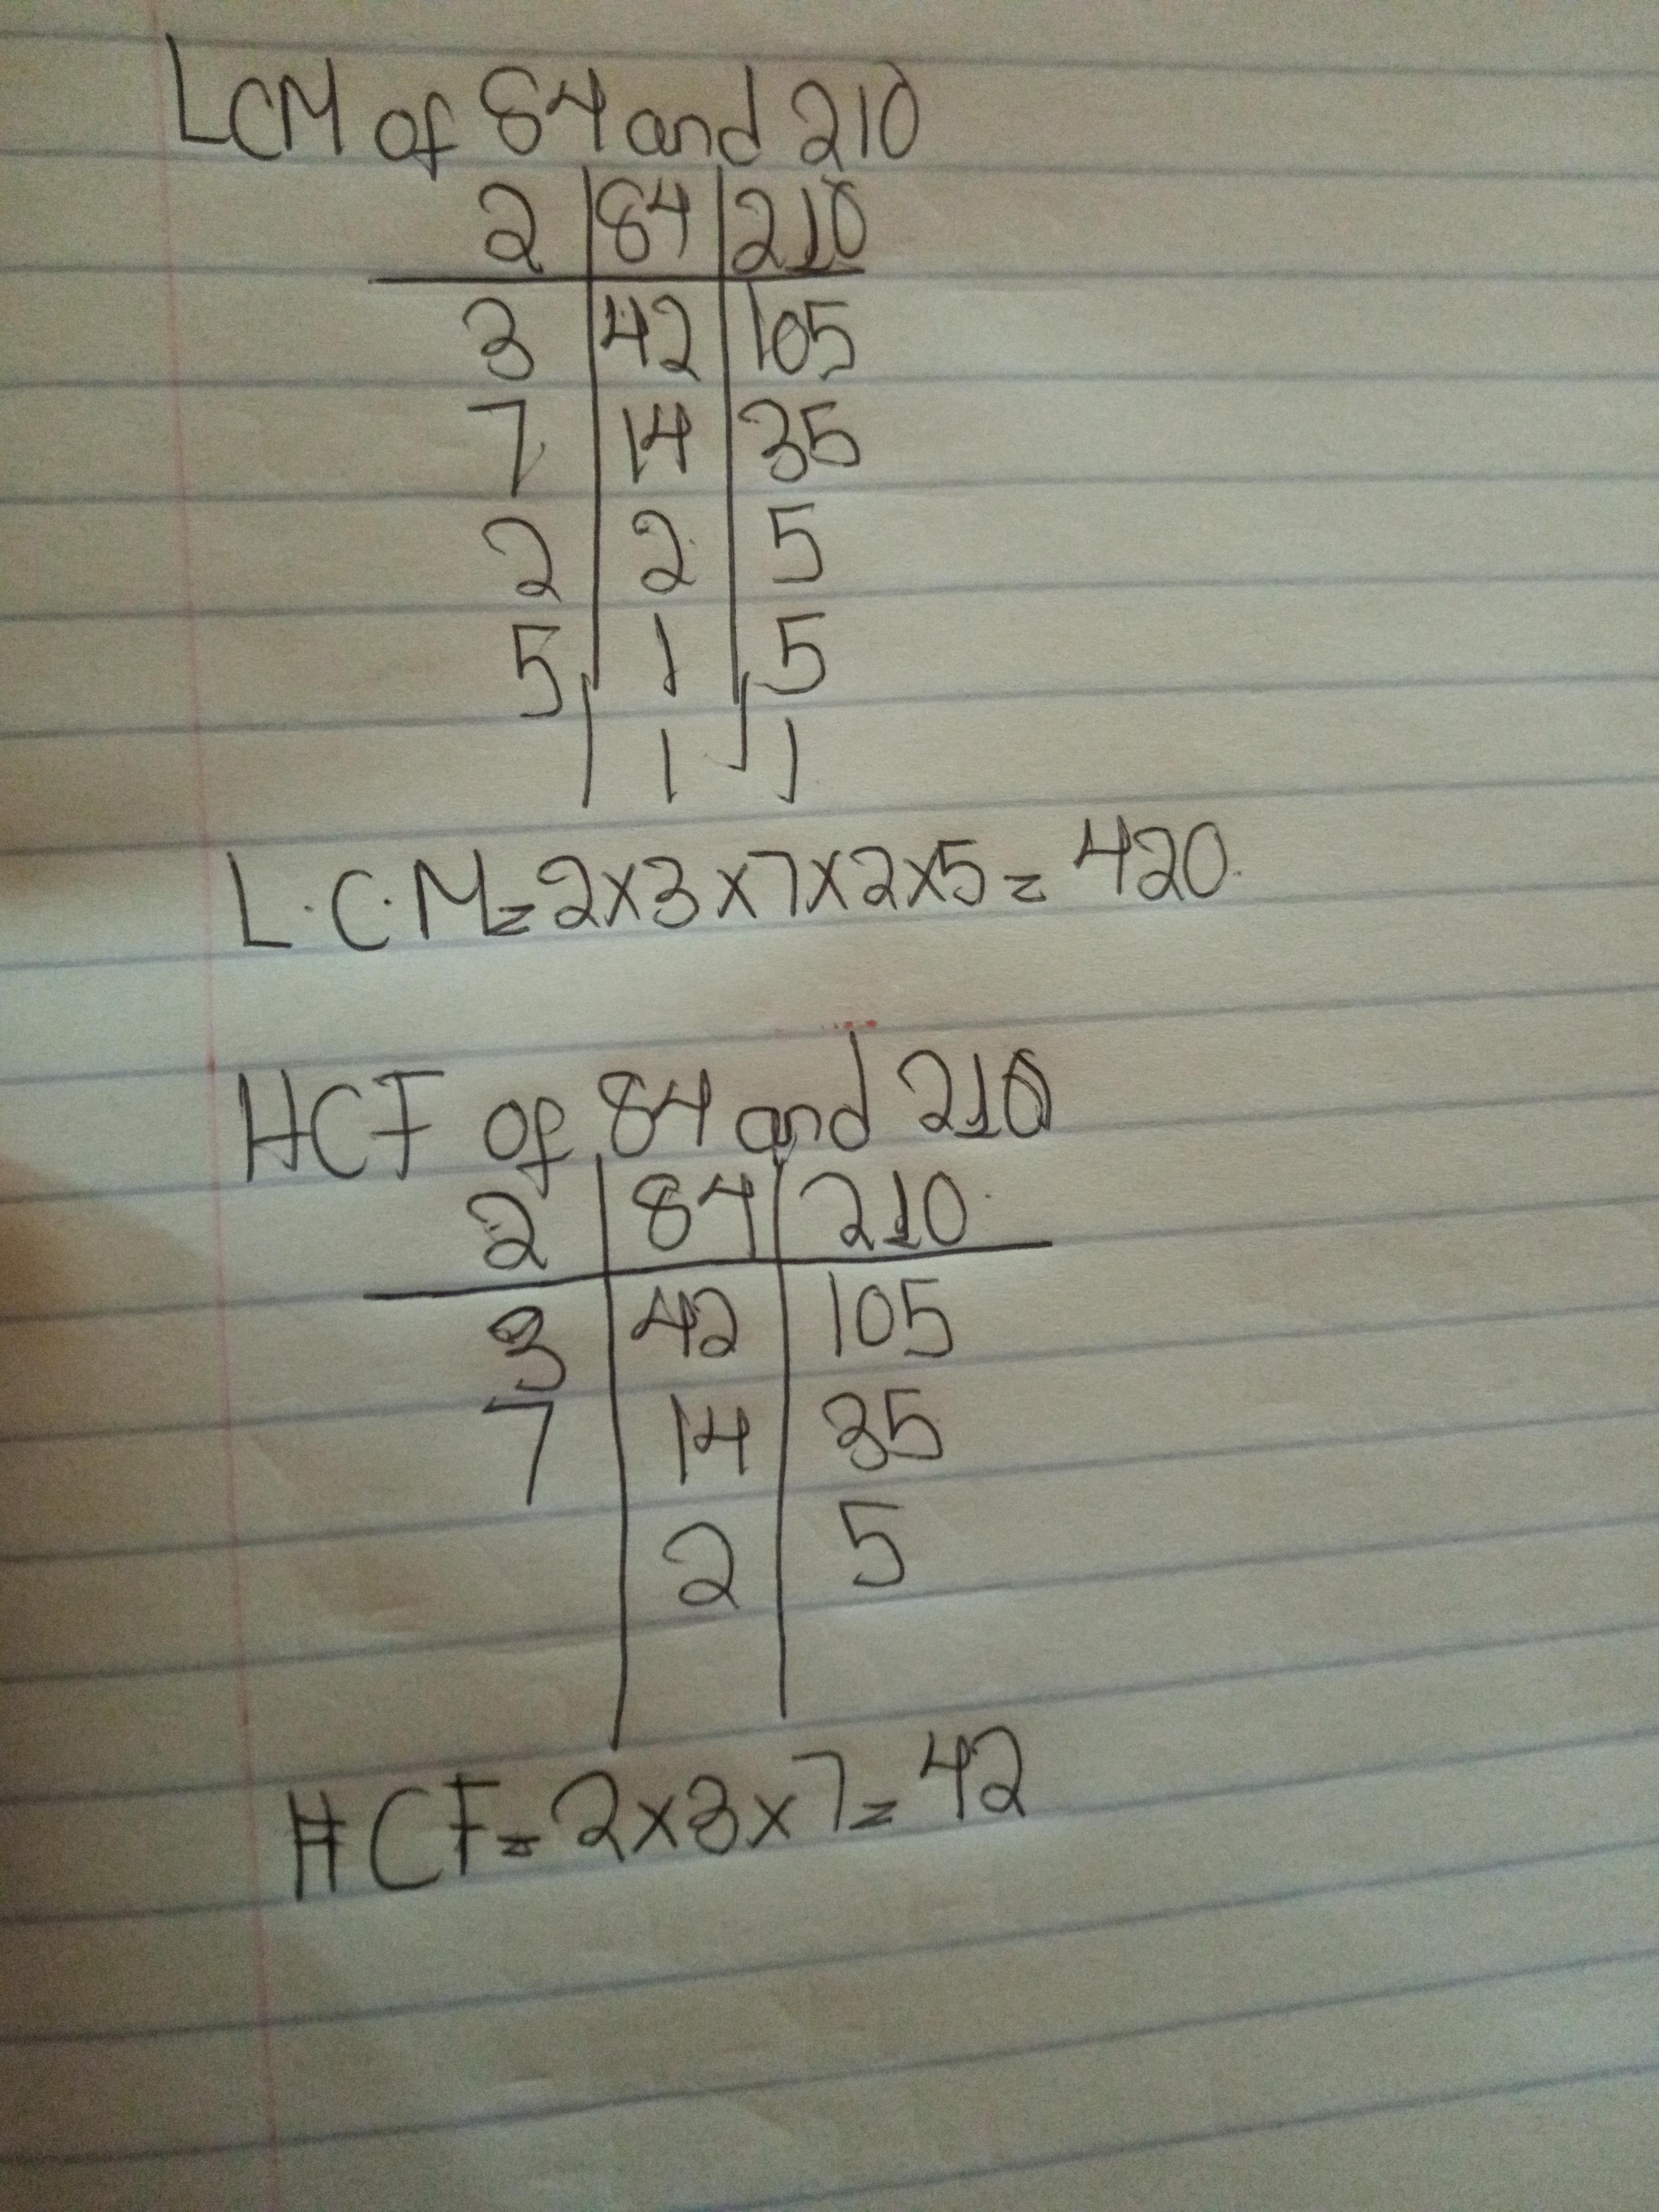 LCM of 84 and 210
2 | 84 | 210
3 | 42 | 105
7 | 14 | 35
2 | 2 | 5
5 | 1 | 5
| 1 | 1
L.C.M = 2x3x7x2x5 = 420.
HCF of 84 and 210
2 | 84 | 210
3 | 42 | 105
7 | 14 | 35
| 2 | 5
HCF = 2x3x7 = 42